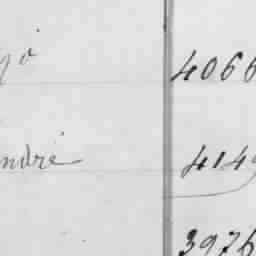 4066
ndré 4149
3976